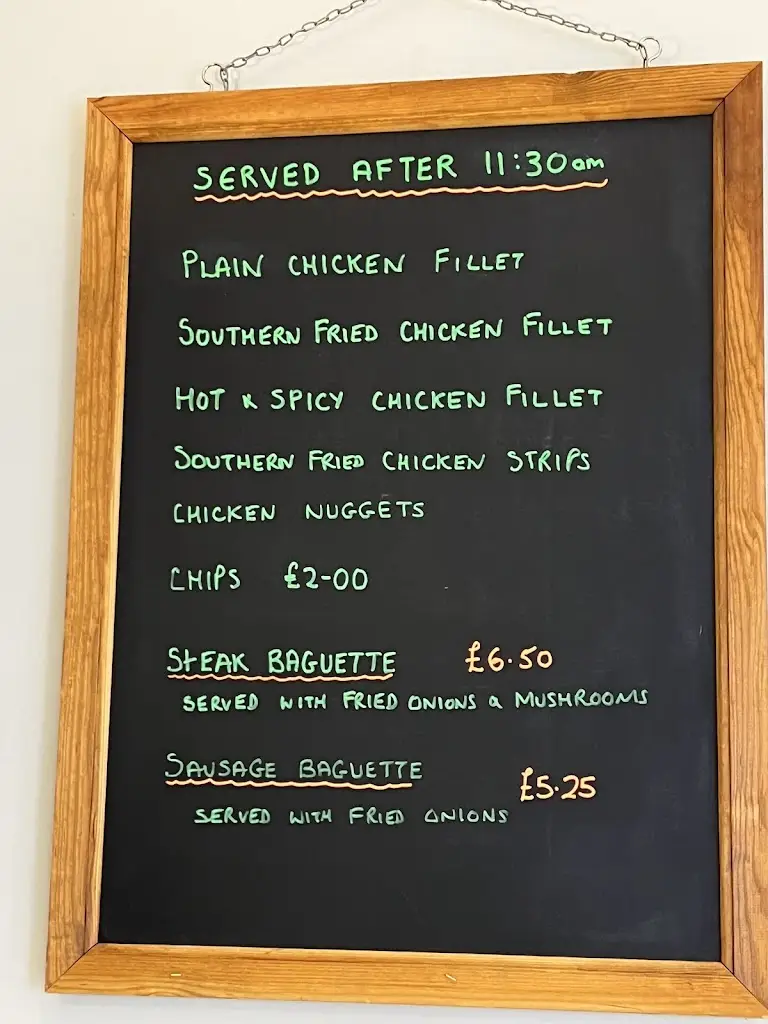 SERVED AFTER 11:30am
PLAIN CHICKEN FILLET
SOUTHERN FRIED CHICKEN FILLET
HOT & SPICY CHICKEN FILLET
SOUTHERN FRIED CHICKEN STRIPS
CHICKEN NUGGETS
CHIPS £2-00
STEAK BAGUETTE £6.50
SERVED WITH FRIED ONIONS & MUSHROOMS
SAUSAGE BAGUETTE £5.25
SERVED WITH FRIED ONIONS